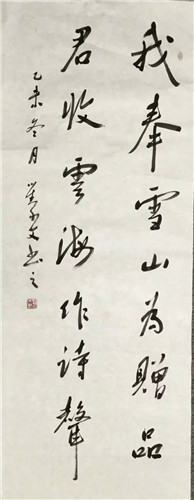 我奉雪山为赠品
君收雲海作诗声
乙未冬月
书之